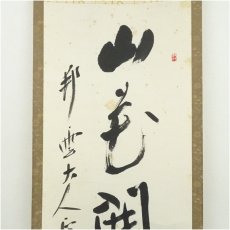 山花開
邦雲大人